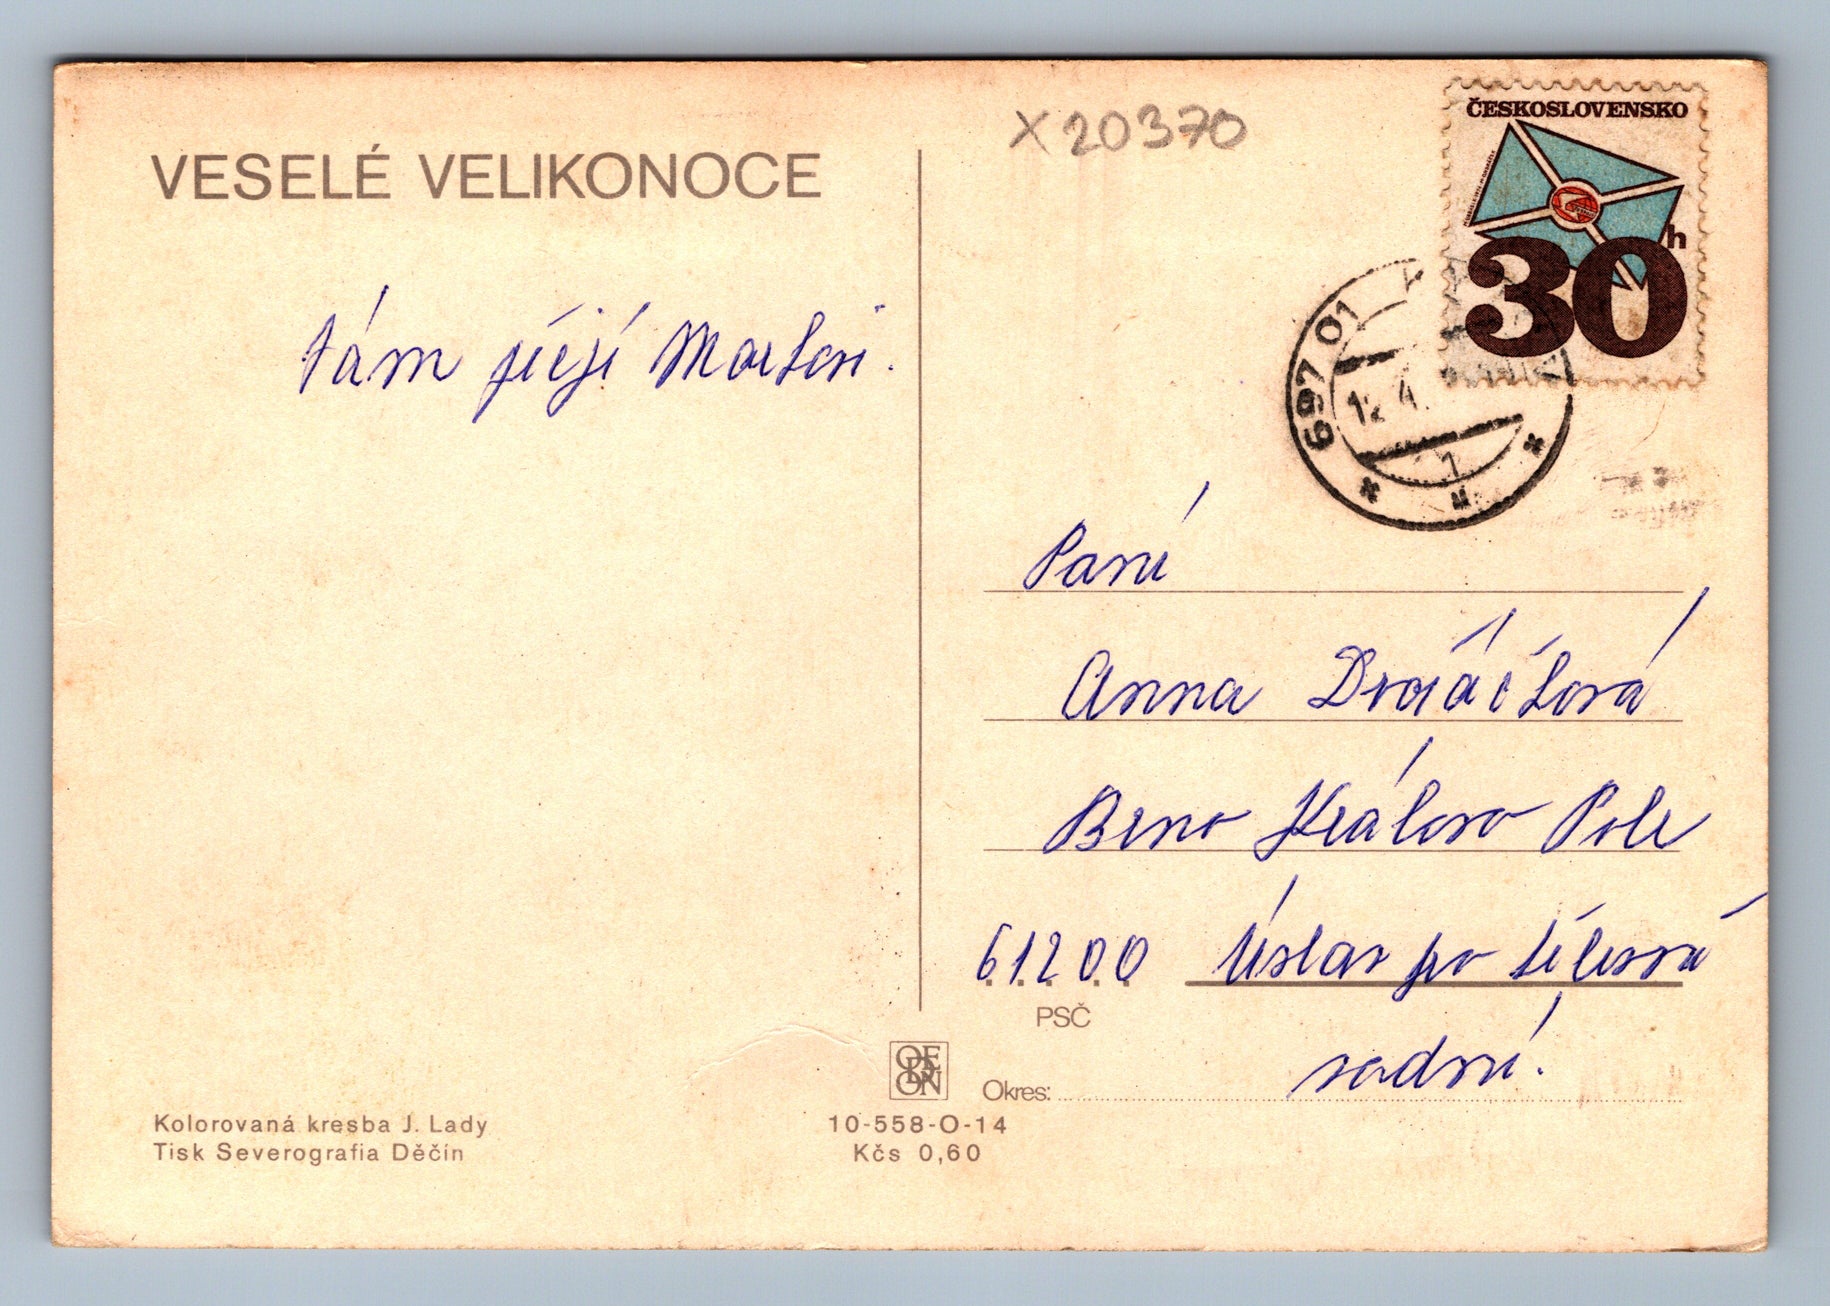 X20370
ČESKOSLOVENSKO
30
h
VESELÉ VELIKONOCE
697 01
12. 4.
1
Vám přejí
Paní
Anna
Brno Královo Pole
61200 Ústav pro tělesná
PSČ
vadná.
ODEON
Okres:
Kolorovaná kresba J. Lady
Tisk Severografia Děčín
10-558-O-14
Kčs 0,60